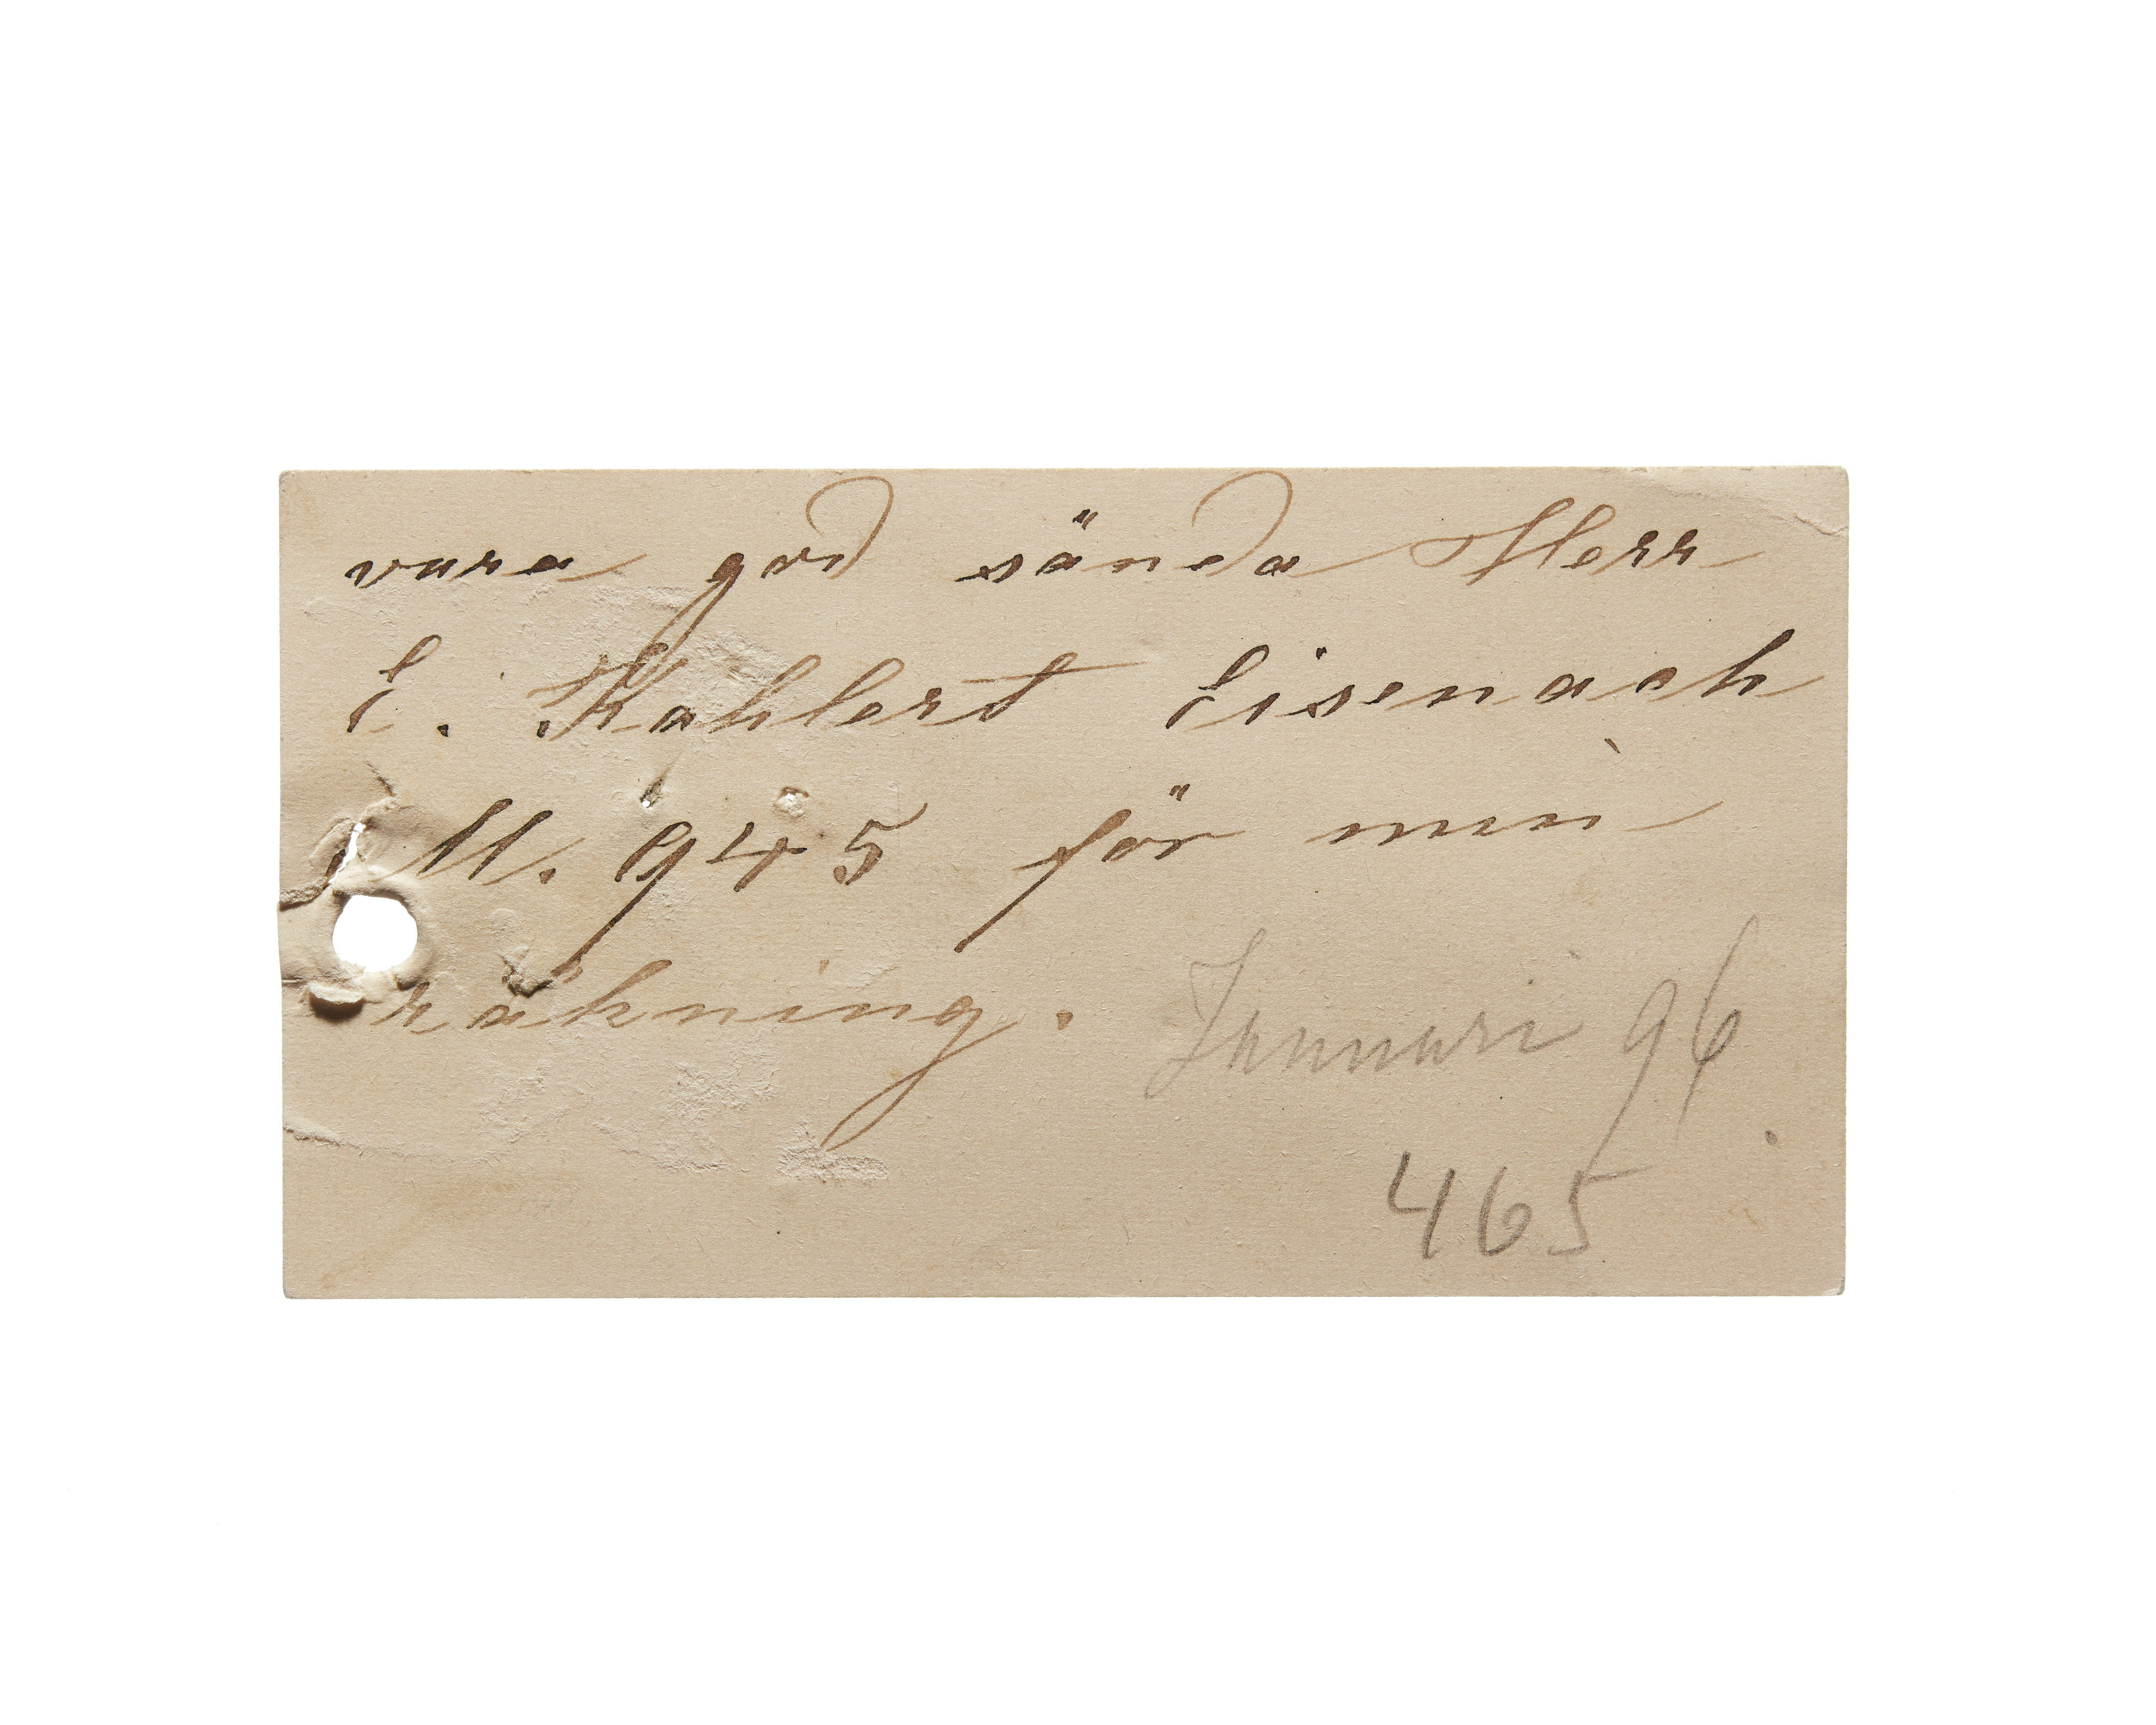 vara god sända Herr
E. Kahlert Eisenach
M. 945 för min
räkning.
Januari 96.
465